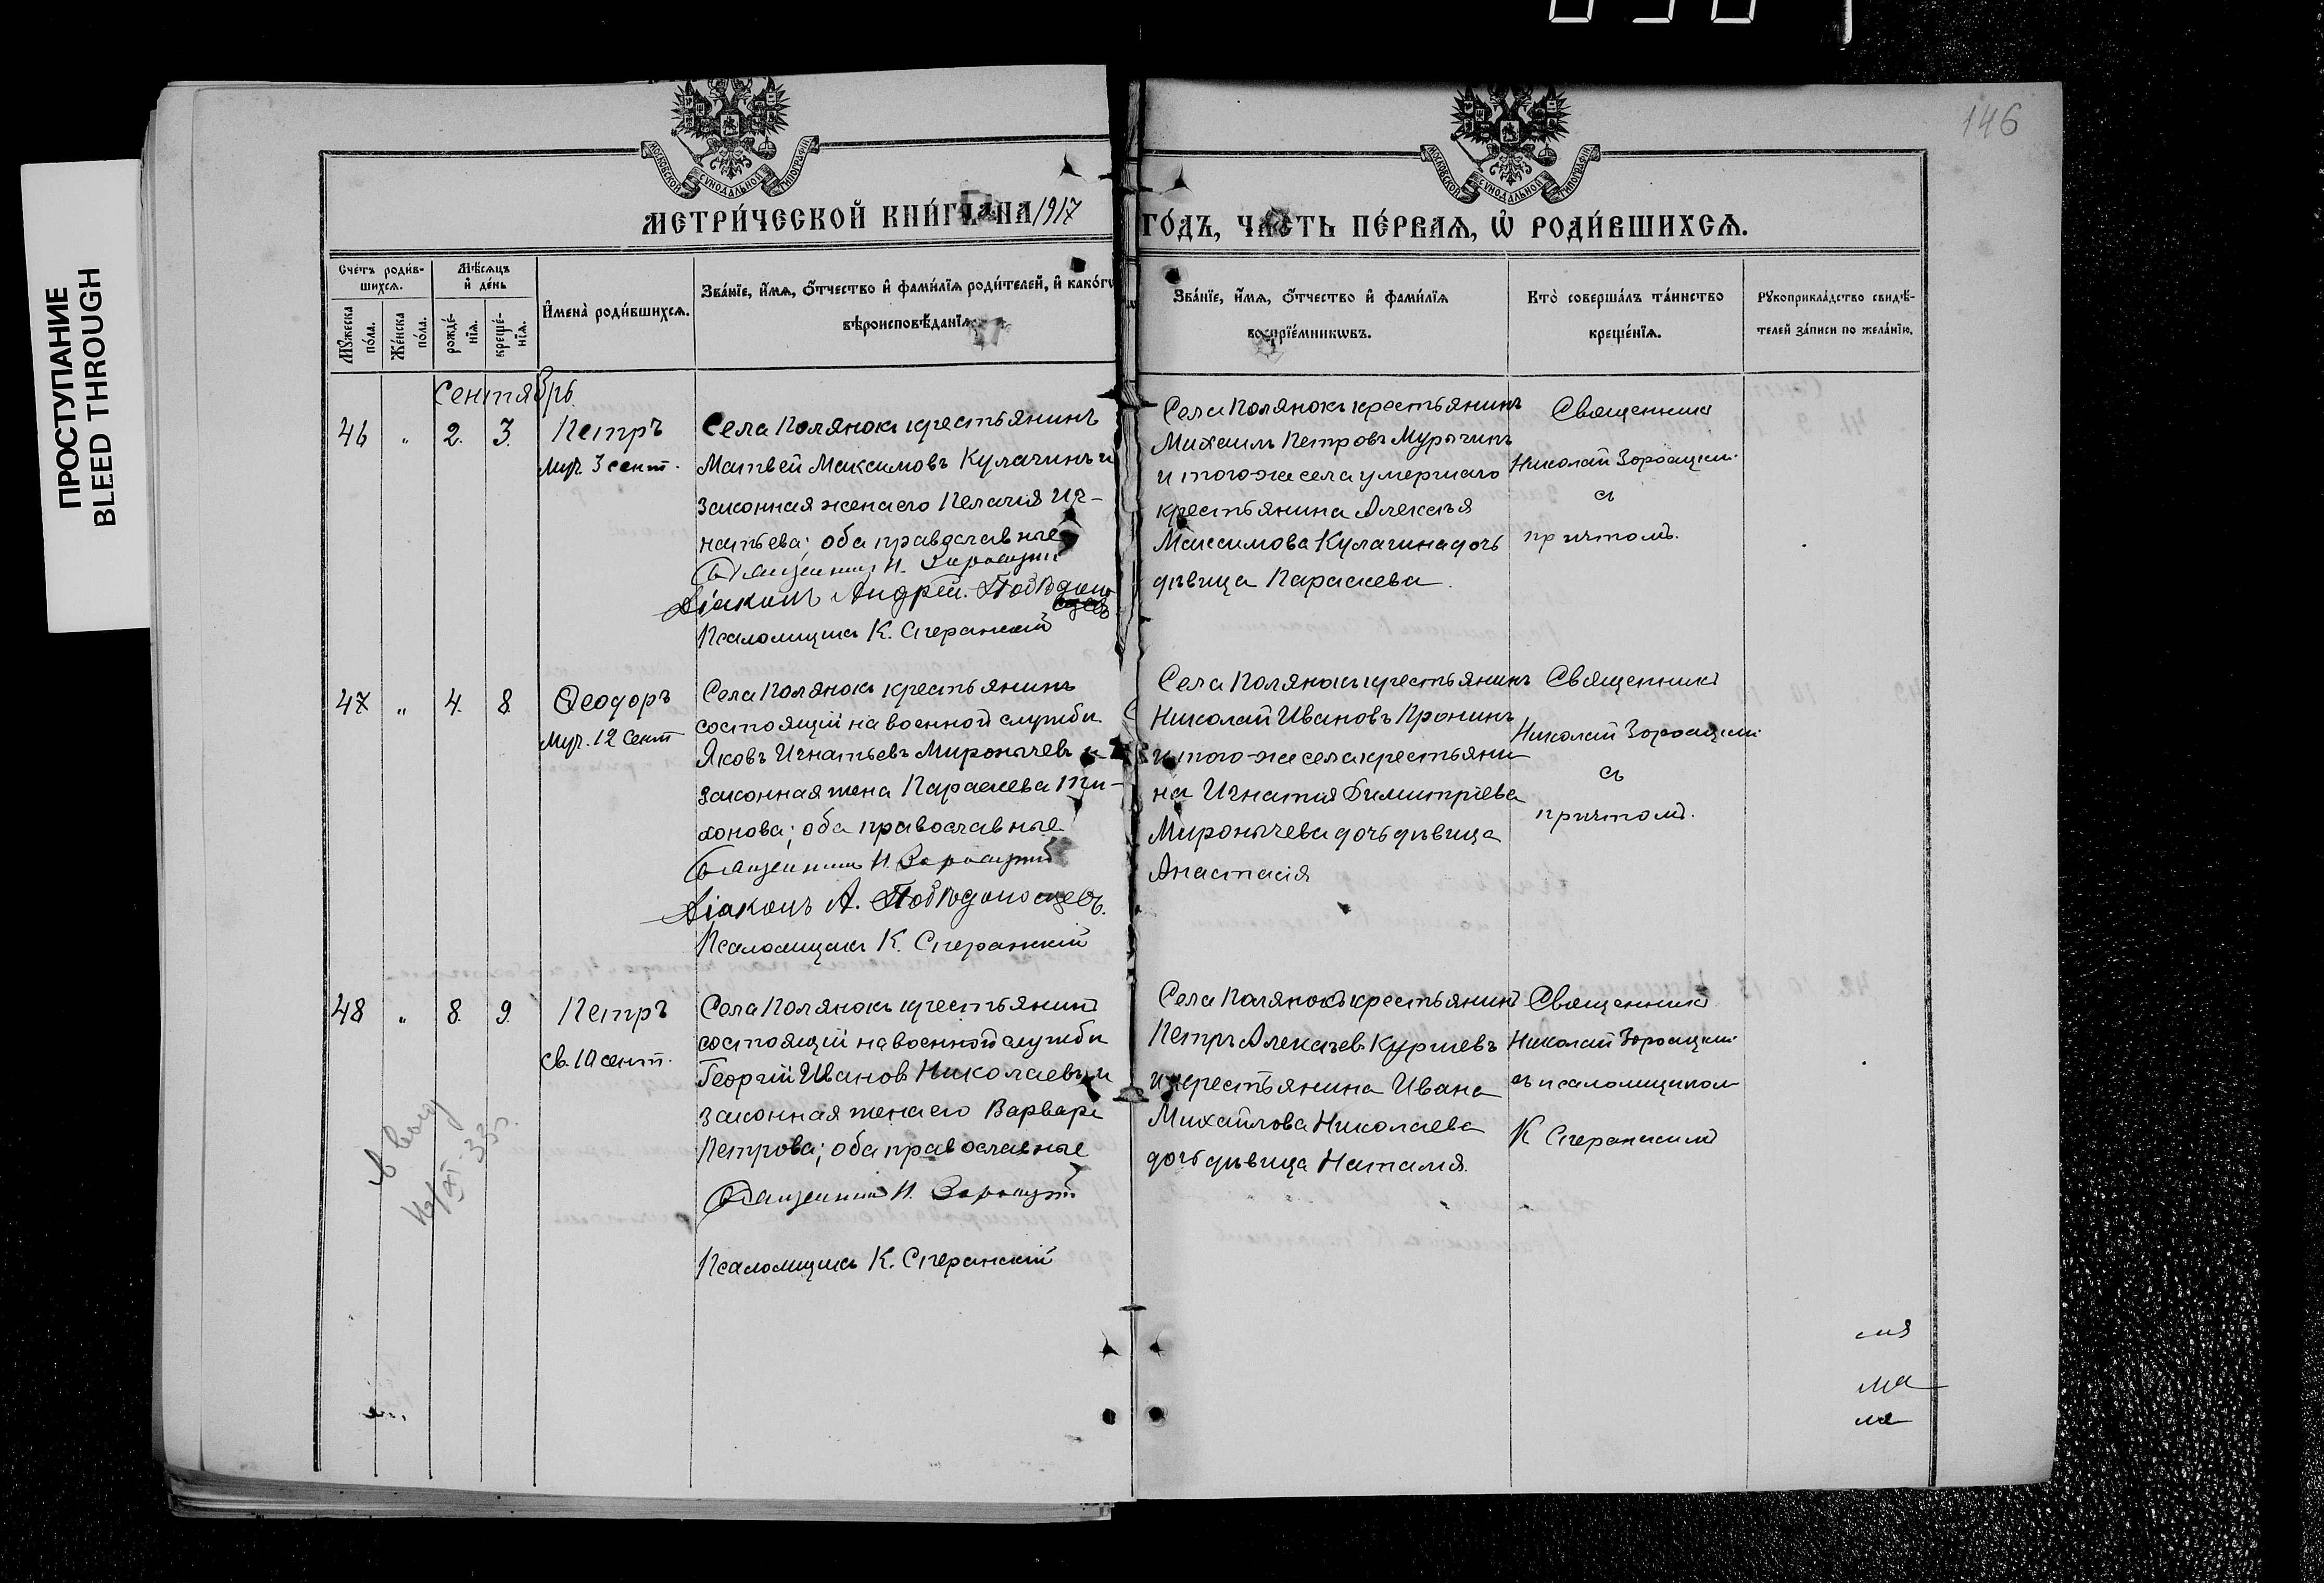 146
ПРОСТУПАНИЕ
BLEED THROUGH
МОСКОВСКОЙ СѴНОДАЛЬНОЙ ТИПОГРАФІИ
МОСКОВСКОЙ СѴНОДАЛЬНОЙ ТИПОГРАФІИ
МЕТРИ́ЧЕСКОЙ КНИ́ГИ НА 1917 ГО́ДЪ, ЧА́СТЬ ПЕ́РВАѦ, Ѡ҆ РОДИ́ВШИХСѦ.
Сче́тъ роди́в-
шихсѧ.
Мѣ́сѧцъ
и҆ де́нь
Мꙋ́жеска
по́ла.
Же́нска
по́ла.
рожде́-
нїѧ.
креще́-
нїѧ.
И҆мена̀ роди́вшихсѧ.
Зва́нїе, и҆́мѧ, ѻ҆́тчество и҆ фами́лїѧ роди́телей, и҆ како́гѡ
вѣроисповѣ́данїѧ.
Зва́нїе, и҆́мѧ, ѻ҆́тчество и҆ фами́лїѧ
воспрїе́мникѡвъ.
Кто̀ соверша́лъ та́инство
креще́нїѧ.
Рꙋкоприкла́дство свидѣ́-
телей за́писи по жела́нїю.
Сентябрь
46 " 2. 3. Петръ
муч. 3 сент.
Села Полянокъ крестьянинъ
Матвей Максимовъ Кулагинъ и
законная жена его Пелагія Иг-
натьева; оба православные
Священникъ Н. Зороацкій
Діаконъ Андрей Побѣдоно-
сцевъ
Псаломщикъ К. Сперанскій
Села Полянокъ крестьянинъ
Михаилъ Петровъ
и того-же села умершаго
крестьянина Алексѣя
Максимова Кулагина дочь
дѣвица Параскева.
Священникъ
Николай Зороацкій
съ
причтомъ.
47 " 4. 8. Ѳеодоръ
муч. 12 сент
Села Полянокъ крестьянинъ
состоящій на военной службѣ
Яковъ Игнатьевъ Миронычевъ и
законная жена Параскева Ти-
хонова; оба православные
Священникъ Н. Зороацкій
Діаконъ А. Побѣдоносцевъ.
Псаломщикъ К. Сперанскій
Села Полянокъ крестьянинъ
Николай Ивановъ Пронинъ
и того-же села крестьяни-
на Игнатія Димитріева
Миронычева дочь дѣвица
Анастасія
Священникъ
Николай Зороацкій
съ
причтомъ.
48 " 8. 9. Петръ
св. 10 сент.
Села Полянокъ крестьянинъ
состоящій на военной службѣ
Георгій Ивановъ Николаевъ и
законная жена его Варвара
Петрова; оба православные
Священникъ Н. Зороацкій
Псаломщикъ К. Сперанскій
Села Полянокъ крестьянинъ
Петръ Алексѣевъ Куршевъ
и крестьянина Ивана
Михайлова Николаева
дочь дѣвица Наталія.
Священникъ
Николай Зороацкій
съ псаломщикомъ
К Сперанскимъ
ма